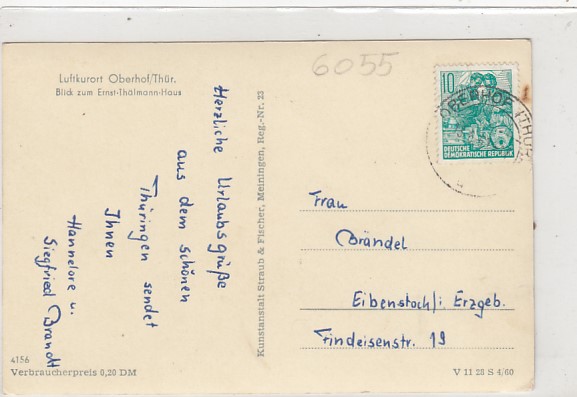 Luftkurort Oberhof/Thür.
Blick zum Ernst-Thälmann-Haus
Herzliche Urlaubsgrüße
aus dem schönen
Thüringen sendet
Ihnen
Hannelore u.
Siegfried Brandt
4156
Verbraucherpreis 0,20 DM
Kunstanstalt Straub & Fischer, Meiningen, Reg.-Nr. 23
6055
10
DEUTSCHE
DEMOKRATISCHE REPUBLIK
OBERHOF (THÜR
Frau
Brändel
Eibenstock/i Erzgeb.
Findeisenstr. 19
V 11 28 S 4/60